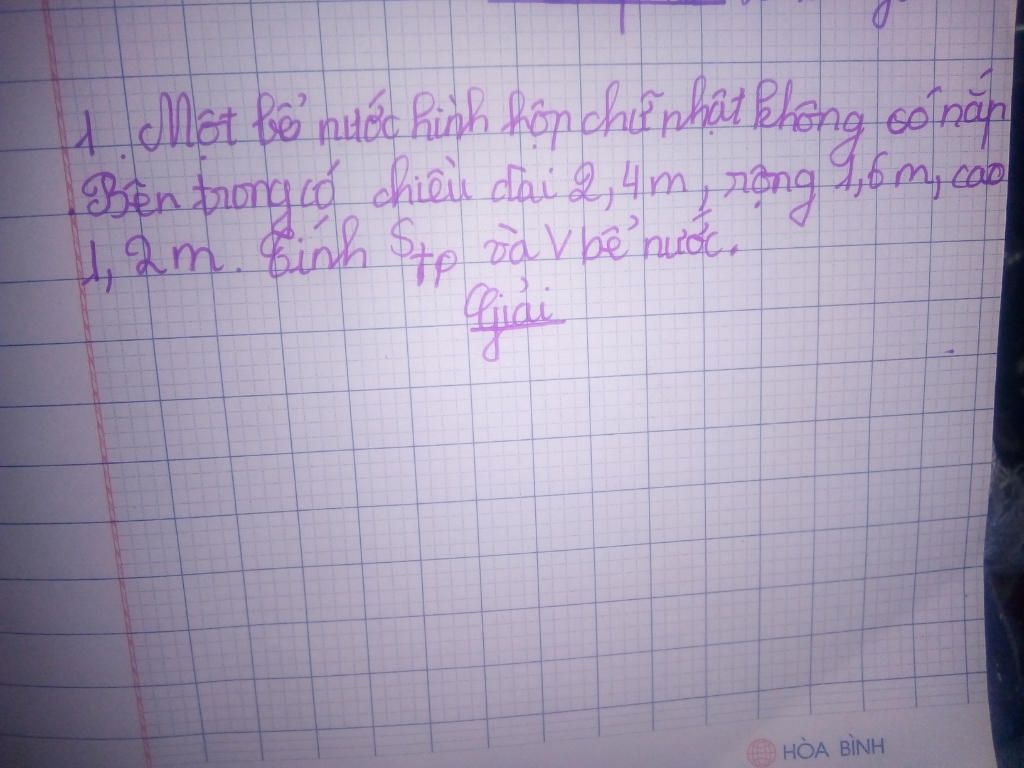 1. Một bể nước hình hộp chữ nhật không có nắp
Bên trong có chiều dài 2,4m, rộng 1,6m, cao
1,2m. Tính Stp và V bể nước.
Giải
HÒA BÌNH